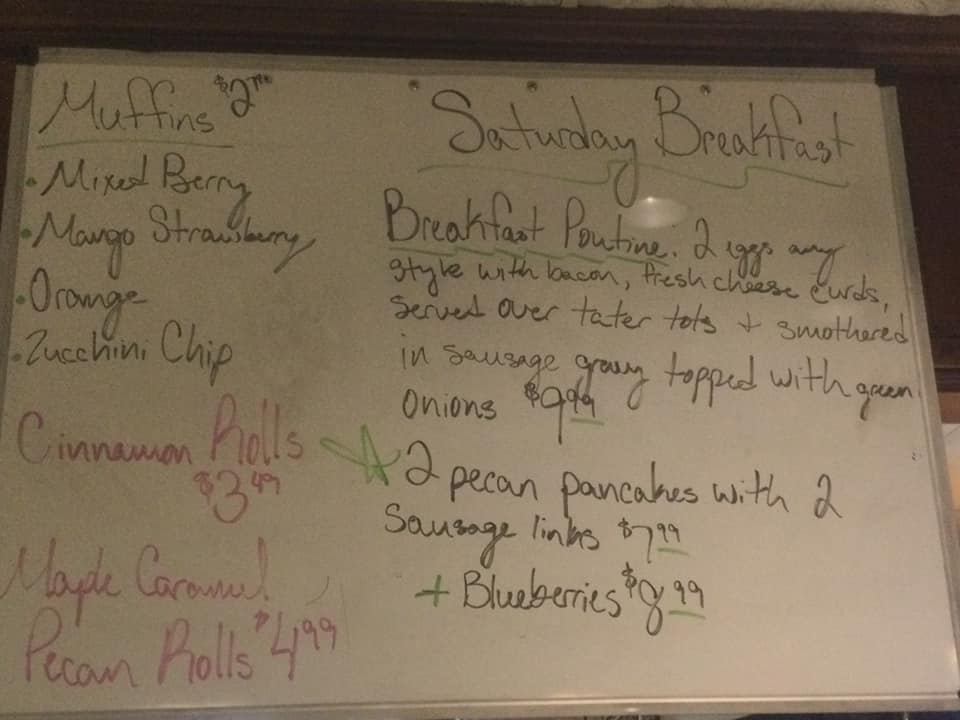 Muffins
• Mixed Berry
• Mango Strawberry
• Orange
• Zucchini Chip
Cinnamon Rolls
$3.49
Maple Caramel
Pecan Rolls $4.99
Saturday Breakfast
Breakfast Poutine. 2 eggs any
style with bacon, fresh cheese curds,
served over tater tots + smothered
in sausage gravy topped with green
onions $9.99
2 pecan pancakes with 2
sausage links $7.99
+ Blueberries $8.99